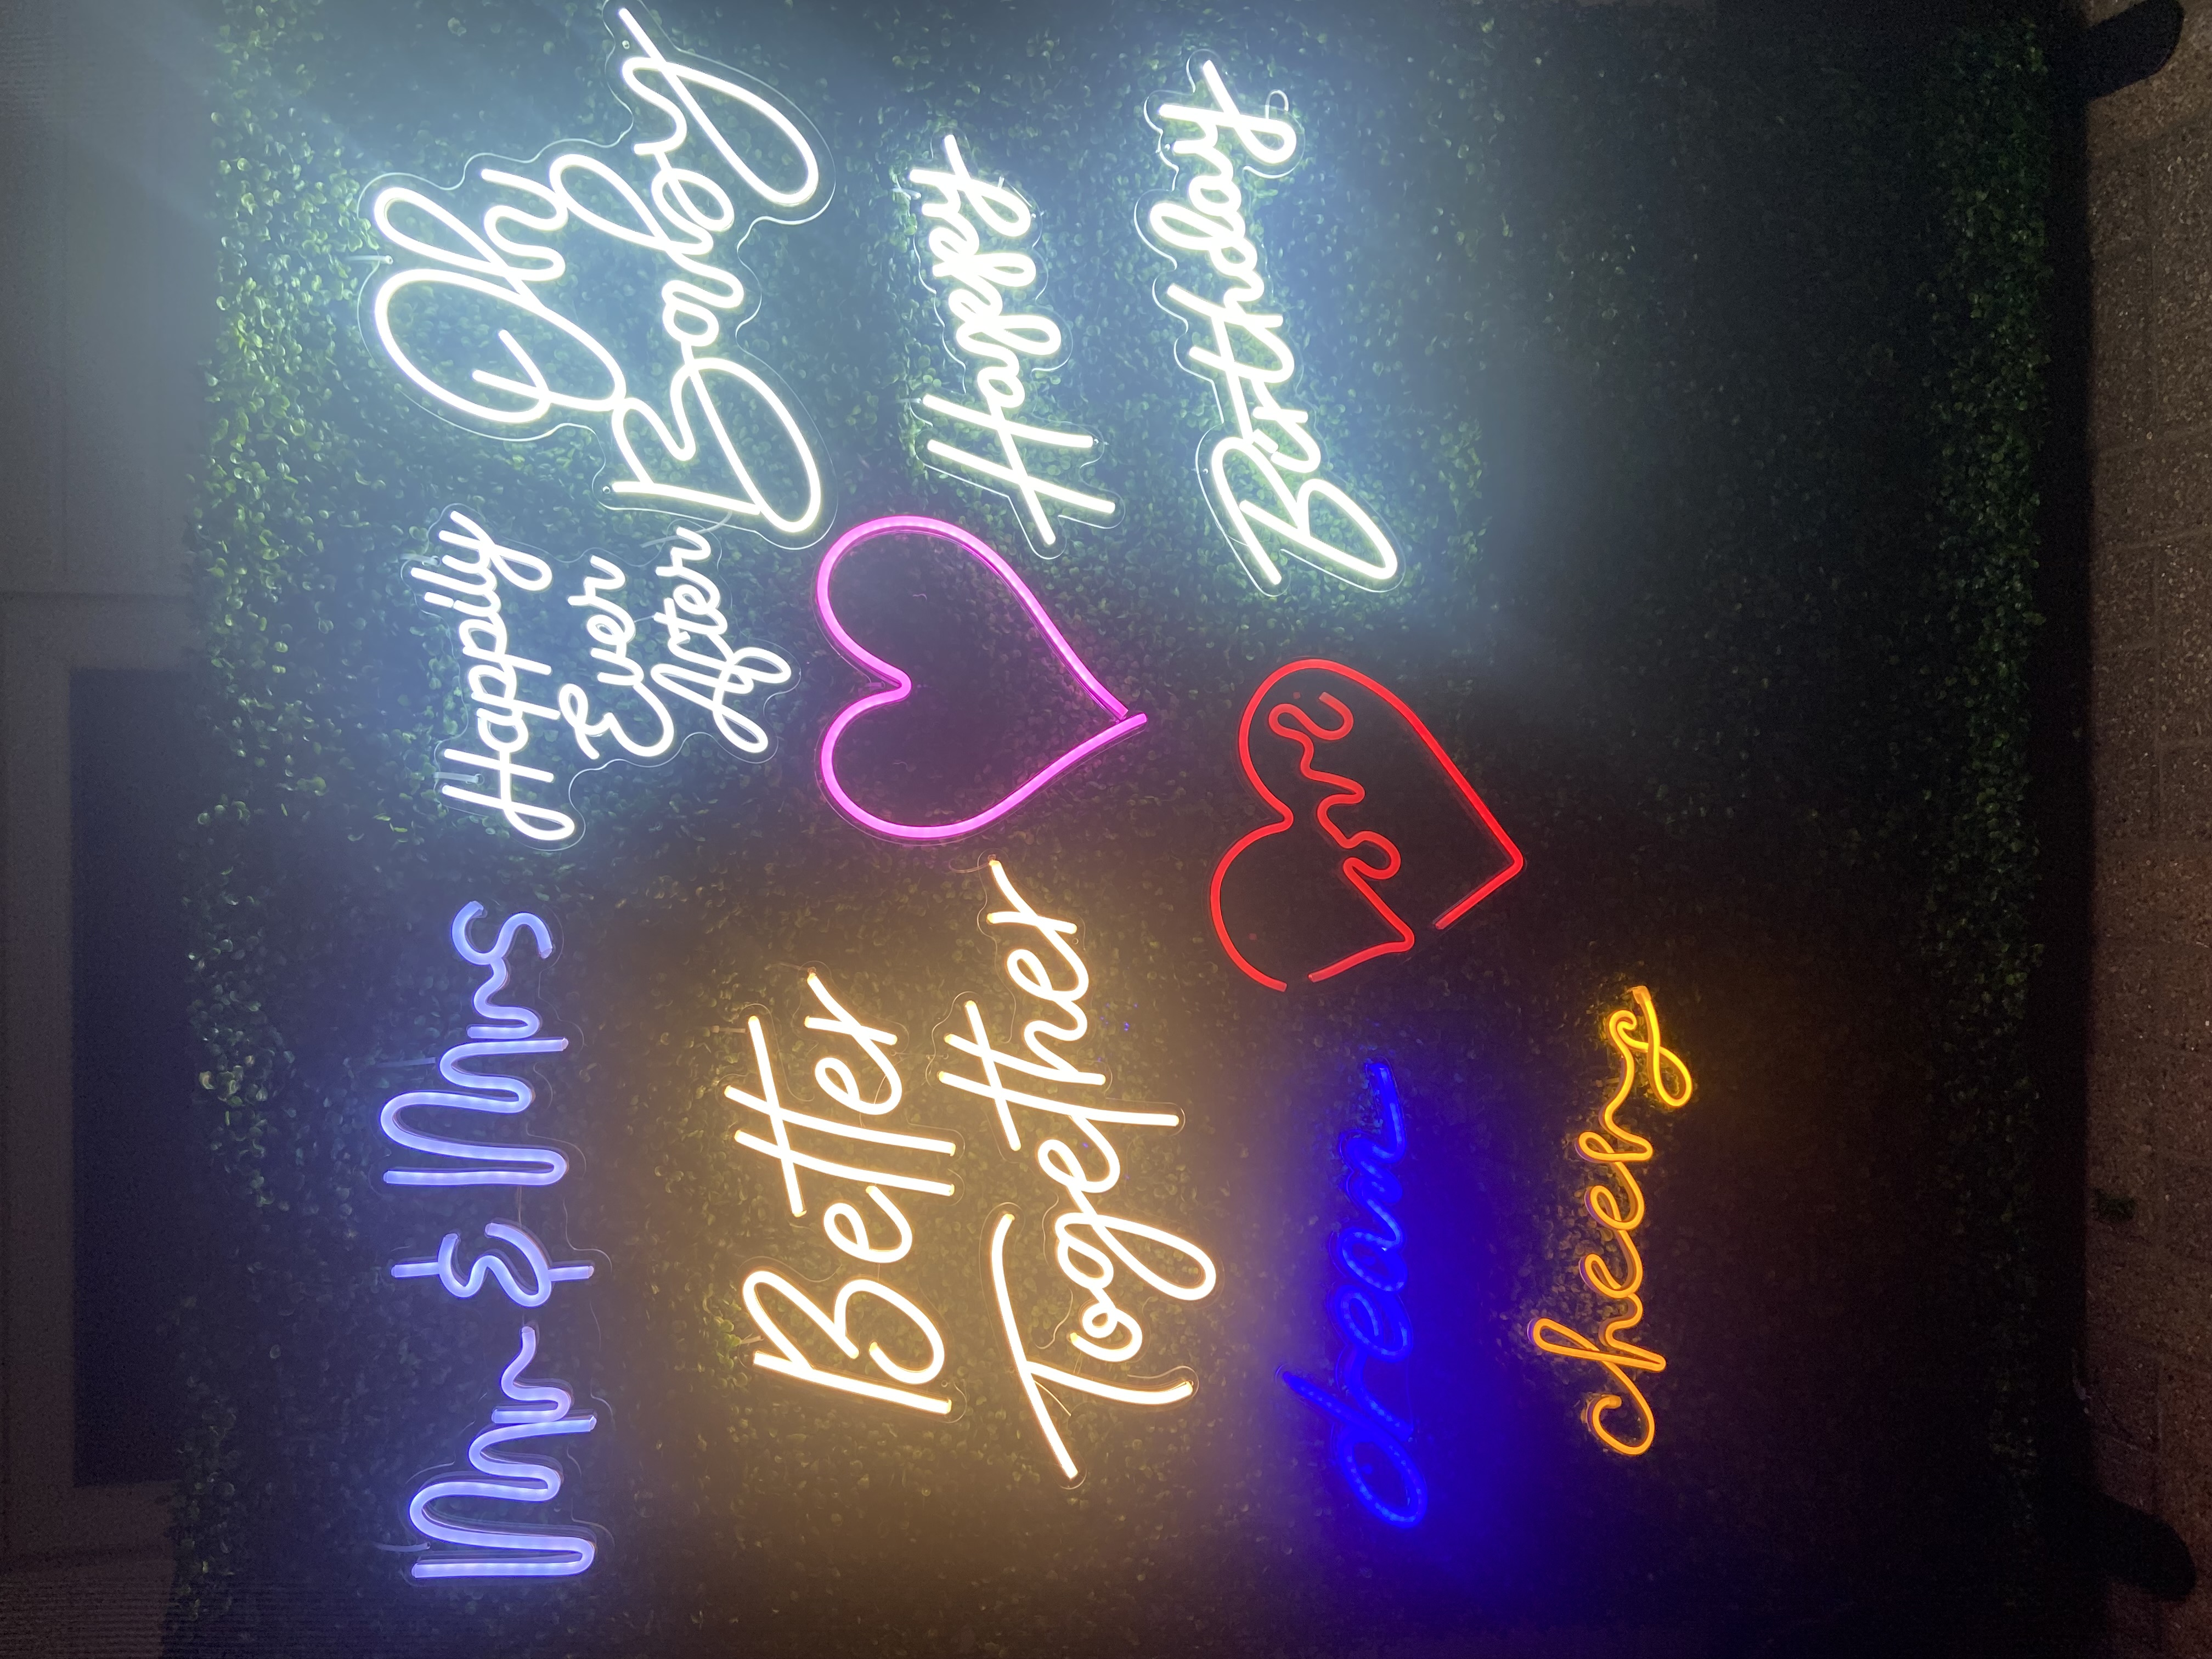 Mr & Mrs
Happily
Ever
After
Oh
Baby
Better
Together
Happy
Birthday
love
dream
cheers